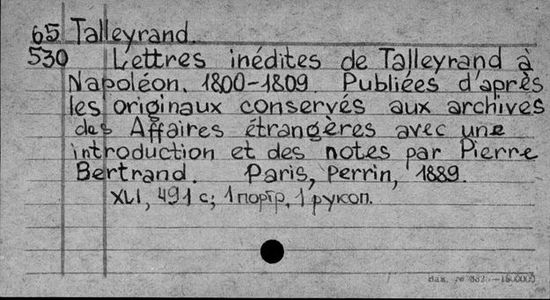 65 Talleyrand.
530 Lettres inédites de Talleyrand à
Napoléon. 1800-1809. Publiées d'après
les originaux conservés aux archives
des Affaires étrangères avec une
introduction et des notes par Pierre
Bertrand. Paris, Perrin, 1889.
XLI, 491 с; 1 портр, 1 рукоп.